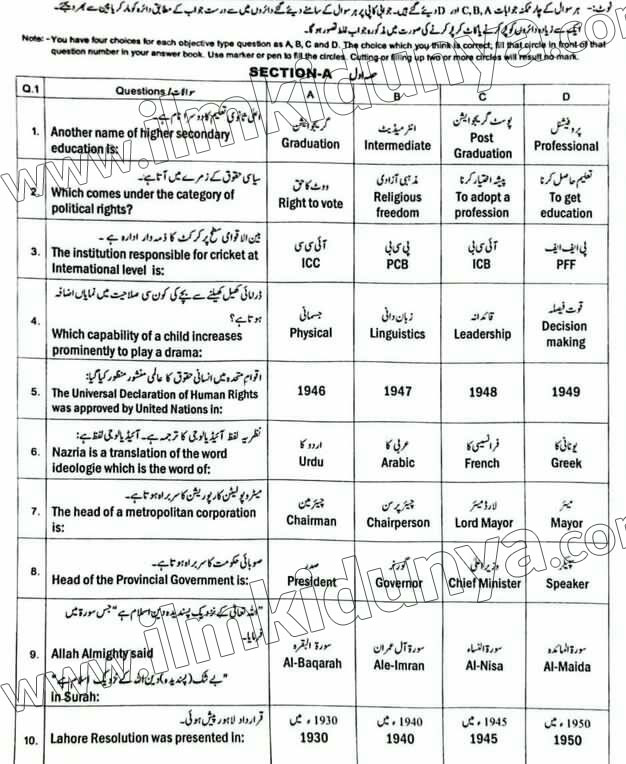 نوٹ:- ہر سوال کے چار ممکنہ جوابات C,B,A اور D دیئے گئے ہیں۔ جوابی کاپی پر ہر سوال کے سامنے دیئے گئے دائروں میں سے درست جواب کے مطابق دائرہ کو مارکر یا پین سے بھر دیجئے۔
ایک سے زیادہ دائروں کو پُر کرنے یا کاٹ کر پُر کرنے کی صورت میں مذکورہ جواب غلط تصور ہو گا۔
Note: -You have four choices for each objective type question as A, B, C and D. The choice which you think is correct; fill that circle in front of that
question number in your answer book. Use marker or pen to fill the circles. Cutting or filling up two or more circles will result no mark.
SECTION-A حصہ اول
Q.1 Questions / سوالات A B C D
اعلیٰ ثانوی تعلیم کا دوسرا نام ہے۔ گریجوایشن انٹرمیڈیٹ پوسٹ گریجوایشن پروفیشنل
1. Another name of higher secondary education is: Graduation Intermediate Post Graduation Professional
سیاسی حقوق کے زمرے میں آتا ہے۔ ووٹ کا حق مذہبی آزادی پیشہ اختیار کرنا تعلیم حاصل کرنا
2. Which comes under the category of political rights? Right to vote Religious freedom To adopt a profession To get education
بین الاقوامی سطح پر کرکٹ کا ذمہ دار ادارہ ہے۔ آئی سی سی پی سی بی آئی سی بی پی ایف ایف
3. The institution responsible for cricket at International level is: ICC PCB ICB PFF
ڈرامائی کھیل کھیلنے سے بچے کی کون سی صلاحیت میں نمایاں اضافہ ہوتا ہے؟ جسمانی زبان دانی قائدانہ قوت فیصلہ
4. Which capability of a child increases prominently to play a drama: Physical Linguistics Leadership Decision making
اقوام متحدہ میں انسانی حقوق کا عالمی منشور منظور کیا گیا:
5. The Universal Declaration of Human Rights was approved by United Nations in: 1946 1947 1948 1949
نظریہ لفظ آئیڈیالوجی کا ترجمہ ہے۔ آئیڈیالوجی لفظ ہے: اردو کا عربی کا فرانسیسی کا یونانی کا
6. Nazria is a translation of the word ideologie which is the word of: Urdu Arabic French Greek
میٹروپولیٹن کارپوریشن کا سربراہ ہوتا ہے۔ چیئرمین چیئرپرسن لارڈ میئر میئر
7. The head of a metropolitan corporation is: Chairman Chairperson Lord Mayor Mayor
صوبائی حکومت کا سربراہ ہوتا ہے۔ صدر گورنر وزیراعلیٰ سپیکر
8. Head of the Provincial Government is: President Governor Chief Minister Speaker
"اللہ تعالیٰ کے نزدیک پسندیدہ دین اسلام ہے" جس سورۃ میں فرمایا۔ سورۃ البقرہ سورۃ آل عمران سورۃ النساء سورۃ المائدہ
9. Allah Almighty said Al-Baqarah Ale-Imran Al-Nisa Al-Maida
"بے شک (پسندیدہ) دین اللہ کے نزدیک اسلام ہے"
in Surah:
قرارداد لاہور پیش ہوئی۔ 1930ء میں 1940ء میں 1945ء میں 1950ء میں
10. Lahore Resolution was presented in: 1930 1940 1945 1950
www.ilmkidunya.com
www.ilmkidunya.com